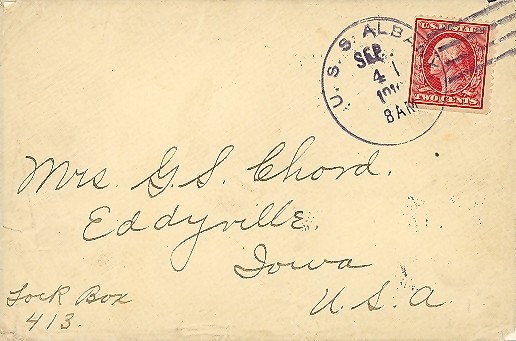 U. S. S. ALBA
SEP
4
8AM
U.S. POSTAGE
TWO CENTS
Mrs. G. S. Chord.
Eddyville.
Iowa
U. S. A.
Lock Box
413.